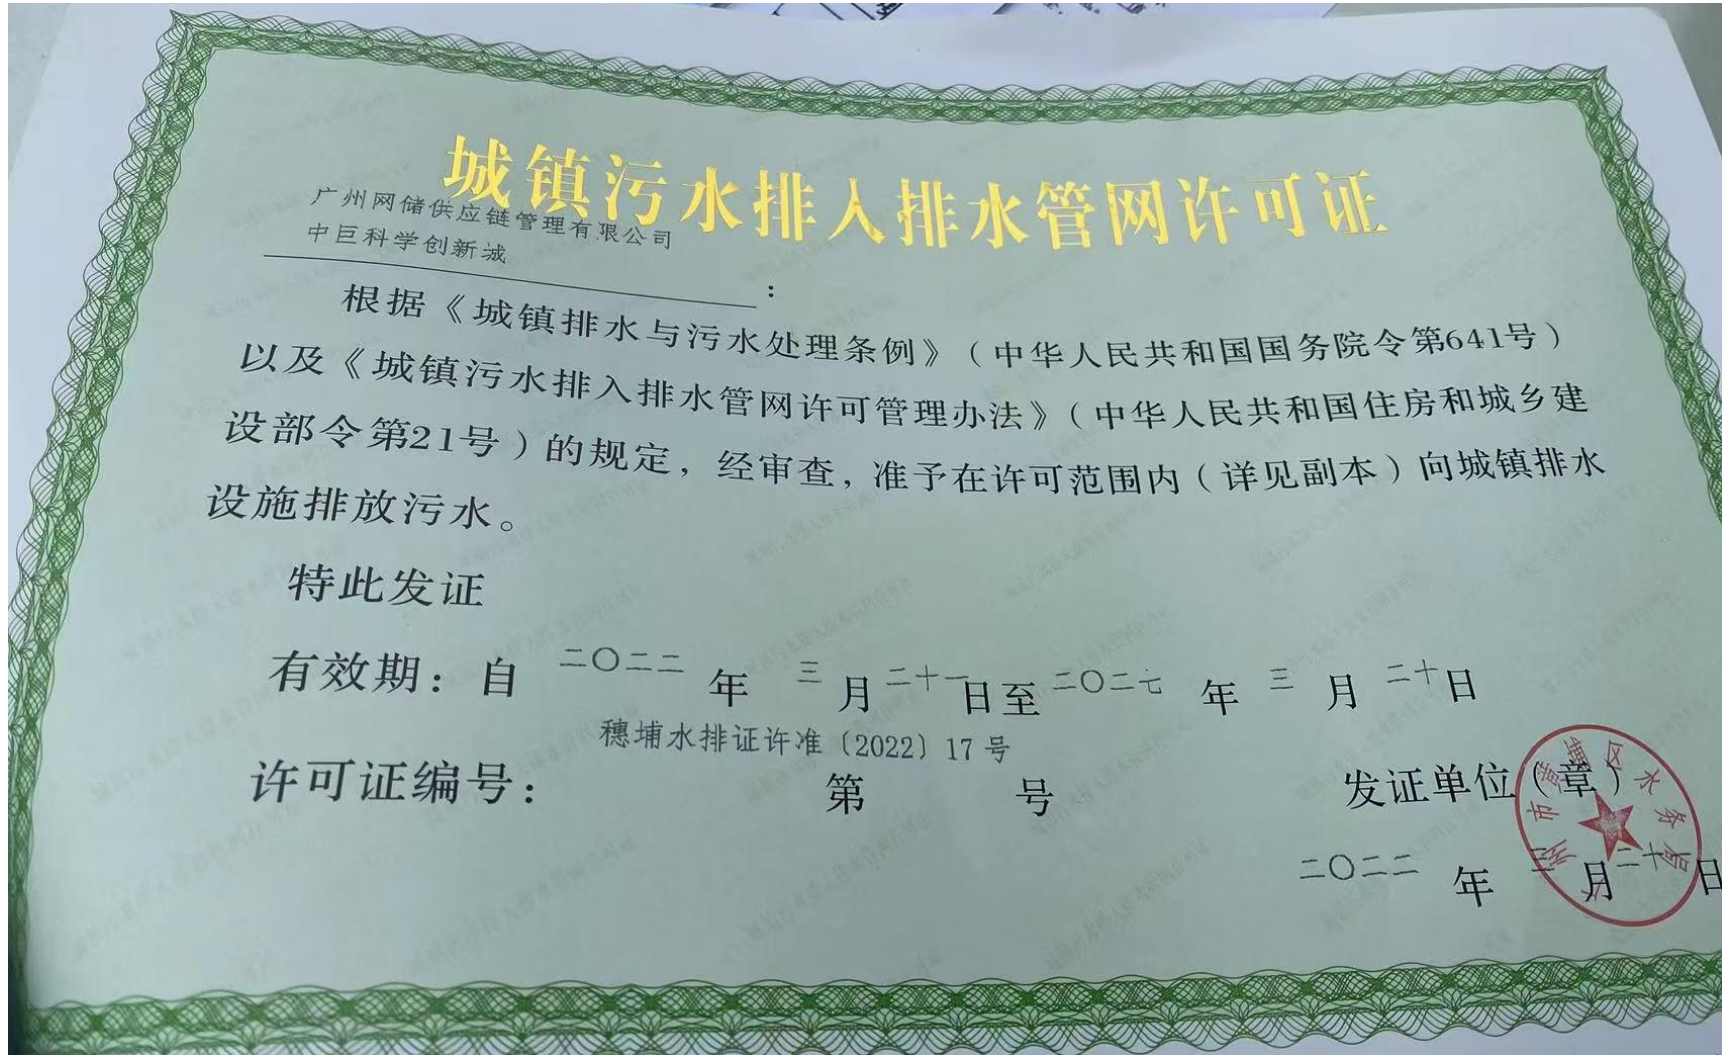 城镇污水排入排水管网许可证
广州网储供应链管理有限公司
中巨科学创新城
：
根据《城镇排水与污水处理条例》（中华人民共和国国务院令第641号）
以及《城镇污水排入排水管网许可管理办法》（中华人民共和国住房和城乡建
设部令第21号）的规定，经审查，准予在许可范围内（详见副本）向城镇排水
设施排放污水。
特此发证
有效期：自 二〇二二 年 三 月 二十一 日至 二〇二七 年 三 月 二十 日
穗埔水排证许准〔2022〕17 号
许可证编号： 第 号
发证单位（章）
州市黄埔区水务局
二〇二二 年 三 月 二十 日